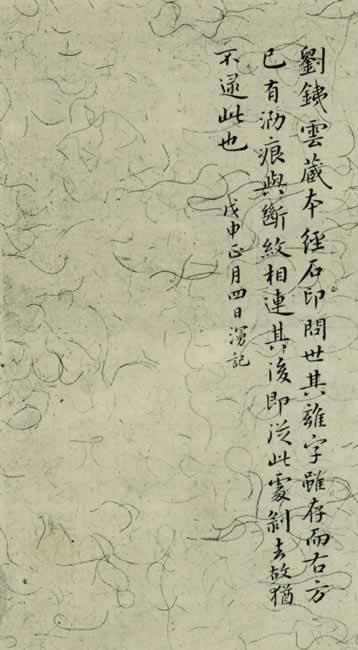 劉鐵雲藏本經石印問世其雖字雖存而右方
已有泐痕與斷紋相連其後即從此處剝去故猶
不逮此也
戊申正月四日漫記